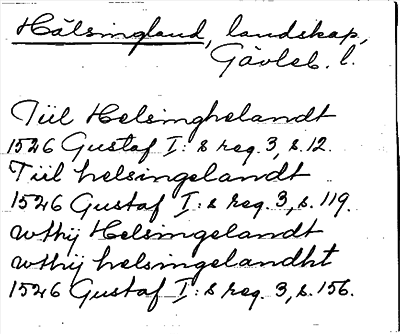 Hälsingland, landskap,
Gävleb. l.
Tiil Helsinghelandt
1526 Gustaf I:s reg. 3, s. 12.
Tiil helsingelandt
1526 Gustaf I:s reg. 3, s. 119.
wthij Helsingelandt
wthij helsingelandht
1526 Gustaf I:s reg. 3, s. 156.